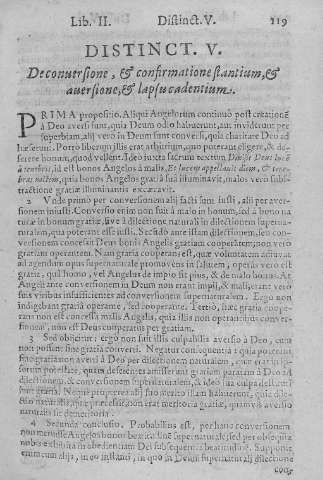 Lib. II. Distinct. V. 119
DISTINCT. V.
De conuersione, & confirmatione stantium, &
auersione, & lapsu cadentium.
PRIMA propositio. Aliqui Angelorum continuò post creationē
à Deo auersi sunt, quia Deum odio habuerunt, aut inviderunt per
superbiam, alij vero in Deum sunt conversi, quia charitate Deo ad
hæserunt. Porro liberum illis erat arbitrium, quo poterant eligere, & de
serere bonum, quod vellent. Ideo juxta sacrum textum Divisit Deus lucē
à tenebris, id est bonos Angelos à malis, & lucem appellavit diem, & tene
bras noctem, quia bonos Angelos gratiâ suâ illuminavit, malos vero sub
tractione gratiæ illuminantis excæcavit.
2 Unde primo per conversionem alij facti sunt justi, alij per aver-
sionem iniusti. Conversio enim non fuit à malo in bonum, sed à bono na
turæ in bonum gratiæ, sive à dilectione naturali in dilectionem superna-
turalem, qua poterant esse justi. Secundo ante istam dilectionem, seu con-
versionem concessit Deus bonis Angelis gratiam cooperātem, non verò
gratiam operantem. Nam gratia cooperans est, quæ voluntatem adiuvat
ad agendum opus supernaturale promovens in salutem, operans verò est
gratia, qui homo, vel Angelus de impio fit pius, & de malo bonus. At
Angeli ante conversionem in Deum non erant impij, & mali, erant vero
suis viribus insufficientes ad conversionem supernaturalem. Ergo non
indigebant gratia operante, sed cooperante. Tertiò, hæc gratia coope-
rans non est concessa malis Angelis, quia illis non operantibus conversi-
onem, non est Deus cooperatus per gratiam.
3 Sed objicitur: ergo non fuit illis culpabilis aversio à Deo, cum
non possunt sine gratiâ converti. Negatur consequentia quia poterant
sine gratiâ non averti à Deo per dilectionem naturalem, quæ erat in ip-
sorum potestate, quam deserentes amiserunt gratiam paratam à Deo ad
dilectionem, & conversionem supernaturalem, & ideo sua culpa destituti
sunt gratia. Neque propterea alij suo merito illam habuerunt, quia dile-
ctio naturalis, quæ præcessit, non erat meritoria gratiæ, quamvis aversio
naturalis sit demeritoria.
4 Secunda conclusio. Probabilius est, per hanc conversionem
non meruisse Angelos bonos beatitudinē supernaturalē, sed per obsequia
nobis exhibita in obedientiam Dei subsequente beatitudine. Supponte
enim cum alijs, in eo instanti, in quo in Deum supernaturali dilectione
con-